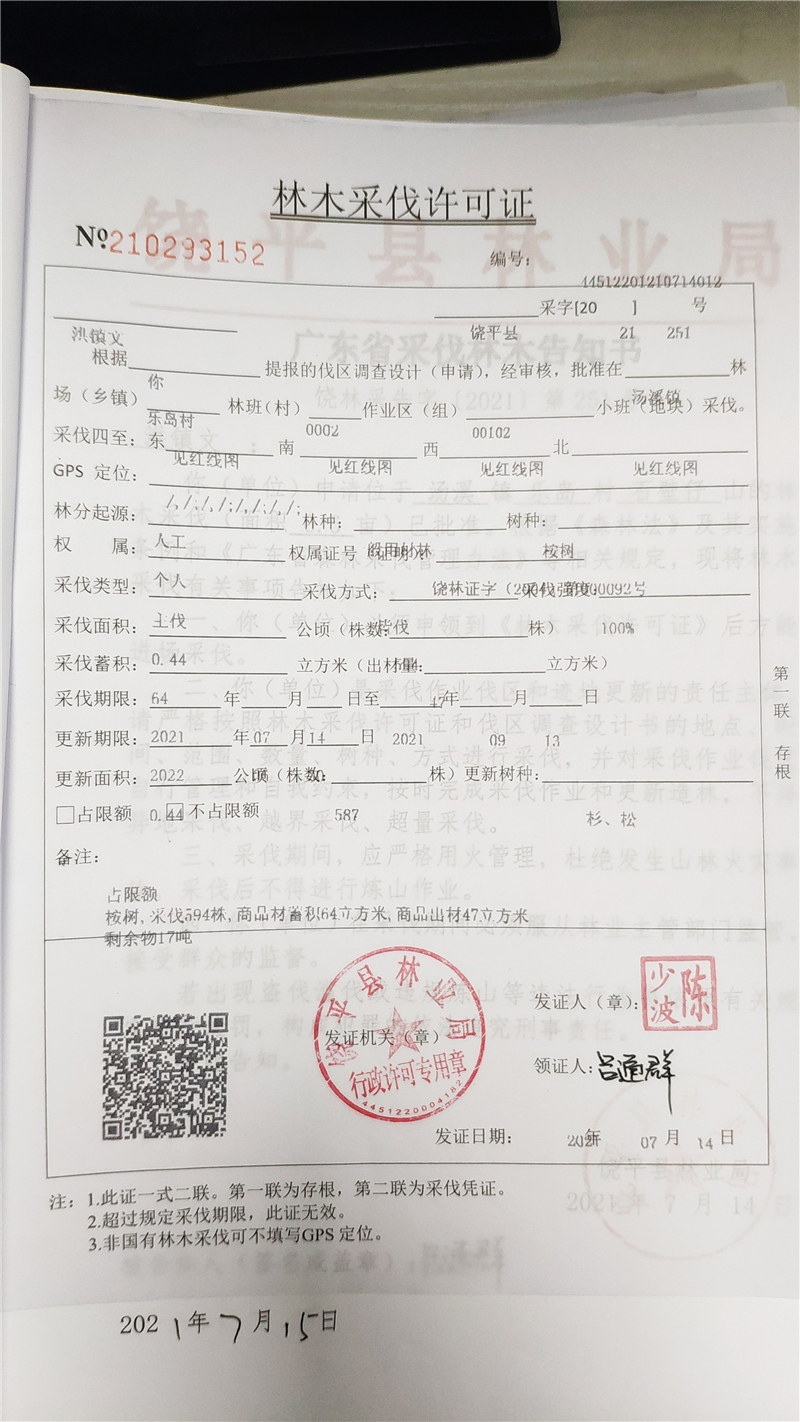 林木采伐许可证
№210293152
编号：
44512201210714012
采字[20 ] 号
饶平县 21 251
洪镇文
根据 提报的伐区调查设计（申请），经审核，批准在 林
你 汤溪镇
场（乡镇） 林班（村） 作业区（组） 小班（地块）采伐。
乐岛村 0002 00102
采伐四至：东 南 西 北
见红线图 见红线图 见红线图 见红线图
GPS 定位：
/,/,/,/;/,/,/,/;
林分起源： 林种： 树种：
人工 般用材林 桉树
权 属： 权属证号（证明）：
个人 饶林证字（2004）第000092号
采伐类型： 采伐方式： 采伐强度：
主伐 皆伐 100%
采伐面积： 公顷（株数： 株）
0.44 594
采伐蓄积： 立方米（出材量： 立方米）
64 47
采伐期限： 年 月 日至 年 月 日
2021 07 14 2021 09 13
更新期限： 年 月 日
2022
更新面积： 公顷（株数： 株）更新树种：
0.44 587 杉、松
□占限额 □不占限额
备注：
占限额
桉树，采伐594株，商品材蓄积64立方米，商品出材47立方米
剩余物17吨
第一联 存根
饶平县林业局
行政许可专用章
4451220004182
发证机关（章）
发证人（章）：
陈少波
领证人：吕通群
发证日期： 2021年 07 月 14 日
注：1.此证一式二联。第一联为存根，第二联为采伐凭证。
2.超过规定采伐期限，此证无效。
3.非国有林木采伐可不填写GPS 定位。
2021年7月15日